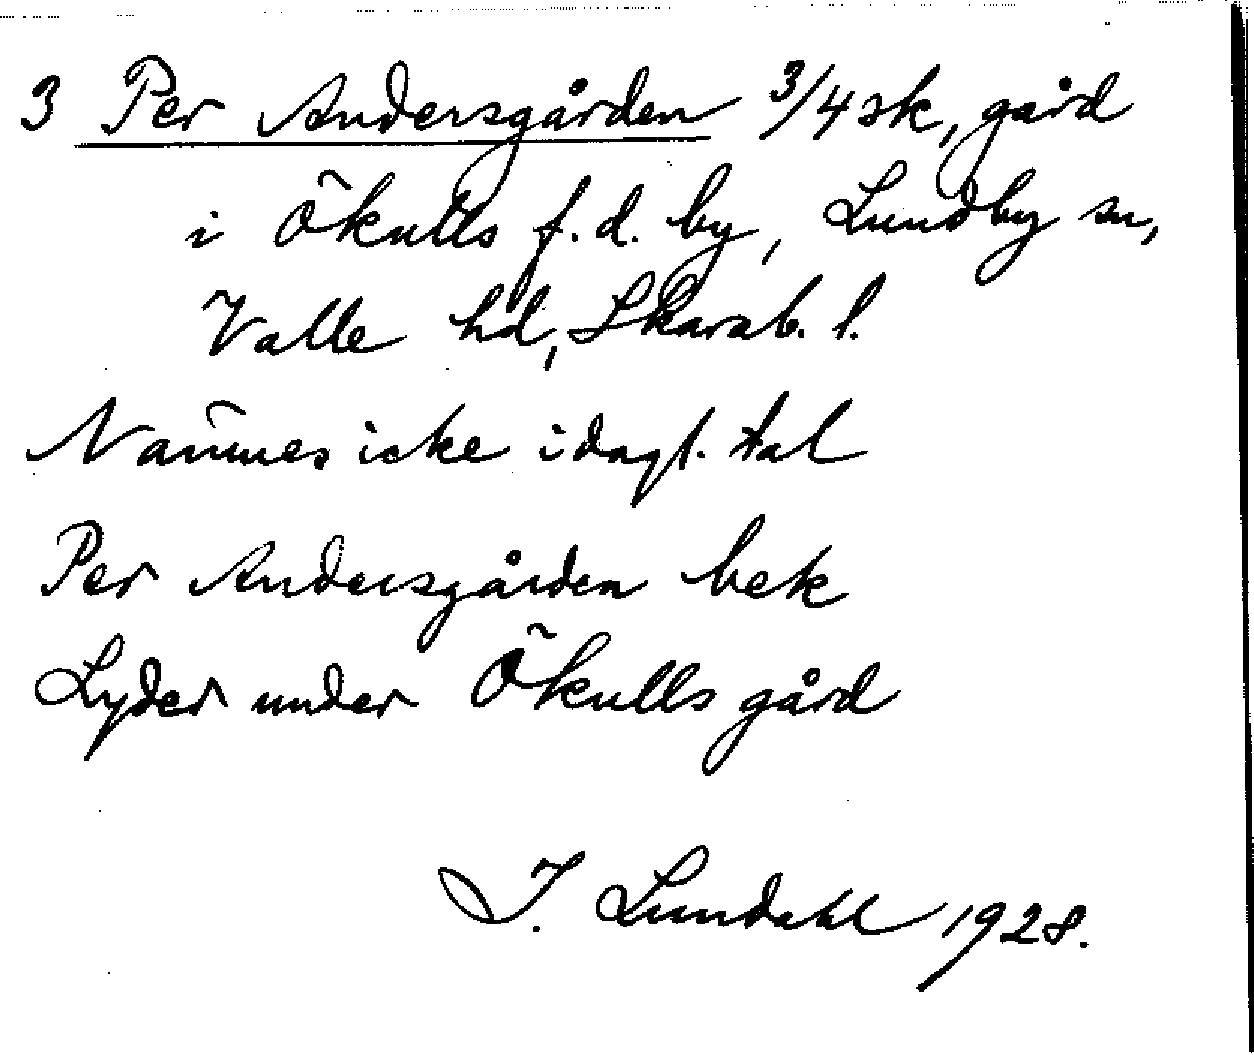 3 Per Andersgården 3/4 sk, gård
i Ökulls f.d. by, Lundby sn,
Valle hd, Skarab. l.
Nämnes icke i dagl. tal
Per Andersgården bek
Lyder under Ökulls gård
I. Lundahl 1928.